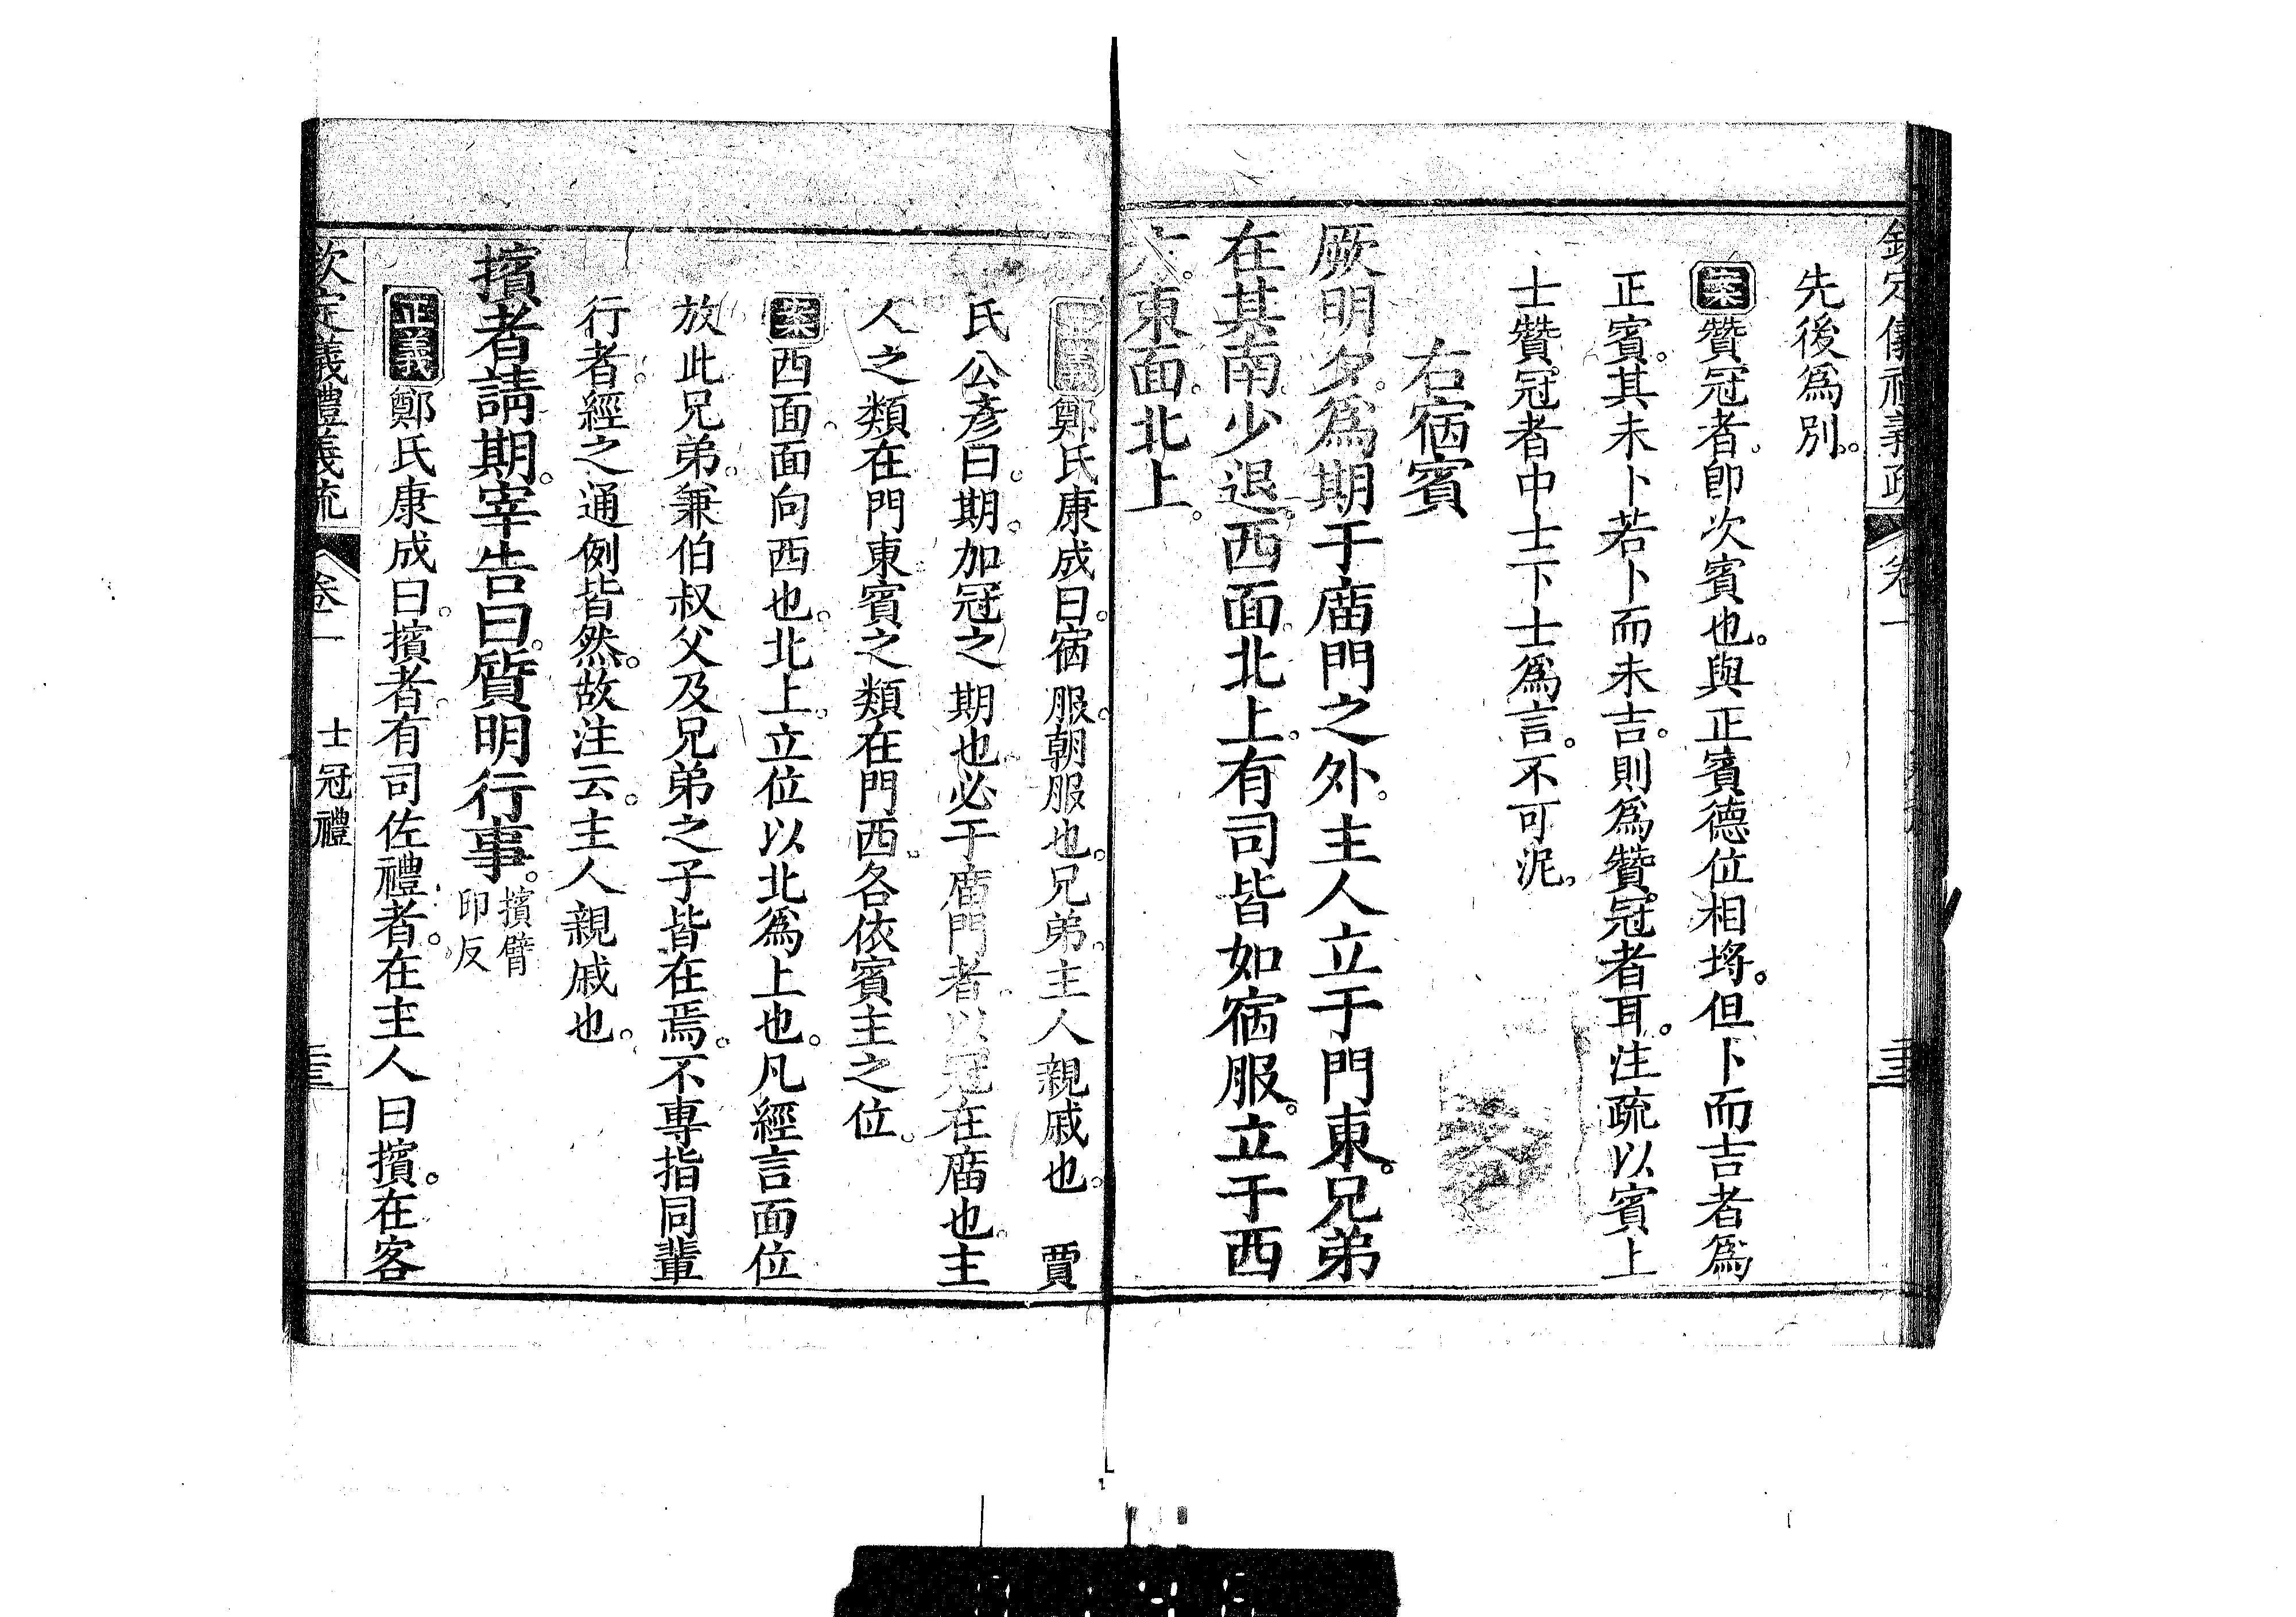 欽定儀禮義疏 卷一
先後爲別。
案贊冠者。卽次賓也。與正賓德位相埒。但卜而吉者爲
正賓。其未卜若卜而未吉。則爲贊冠者耳。注疏以賓上
士贊冠者中士下士爲言。不可泥。
右宿賓
厥明夕。爲期于庿門之外。主人立于門東。兄弟
在其南。少退。西面。北上。有司皆如宿服。立于西
方。東面。北上。
正義鄭氏康成曰。宿服。朝服也。兄弟。主人親戚也。 賈
氏公彥曰。期。加冠之期也。必于庿門者。以冠在庿也。主
人之類在門東。賓之類在門西。各依賓主之位。
案西面。面向西也。北上。立位以北爲上也。凡經言面位
放此。兄弟。兼伯叔父及兄弟之子皆在焉。不專指同輩
行者。經之通例皆然。故注云。主人親戚也。
擯者請期。宰告曰。質明行事。擯臂
印反
正義鄭氏康成曰。擯者。有司佐禮者。在主人曰擯。在客
欽定儀禮義疏 卷一 士冠禮